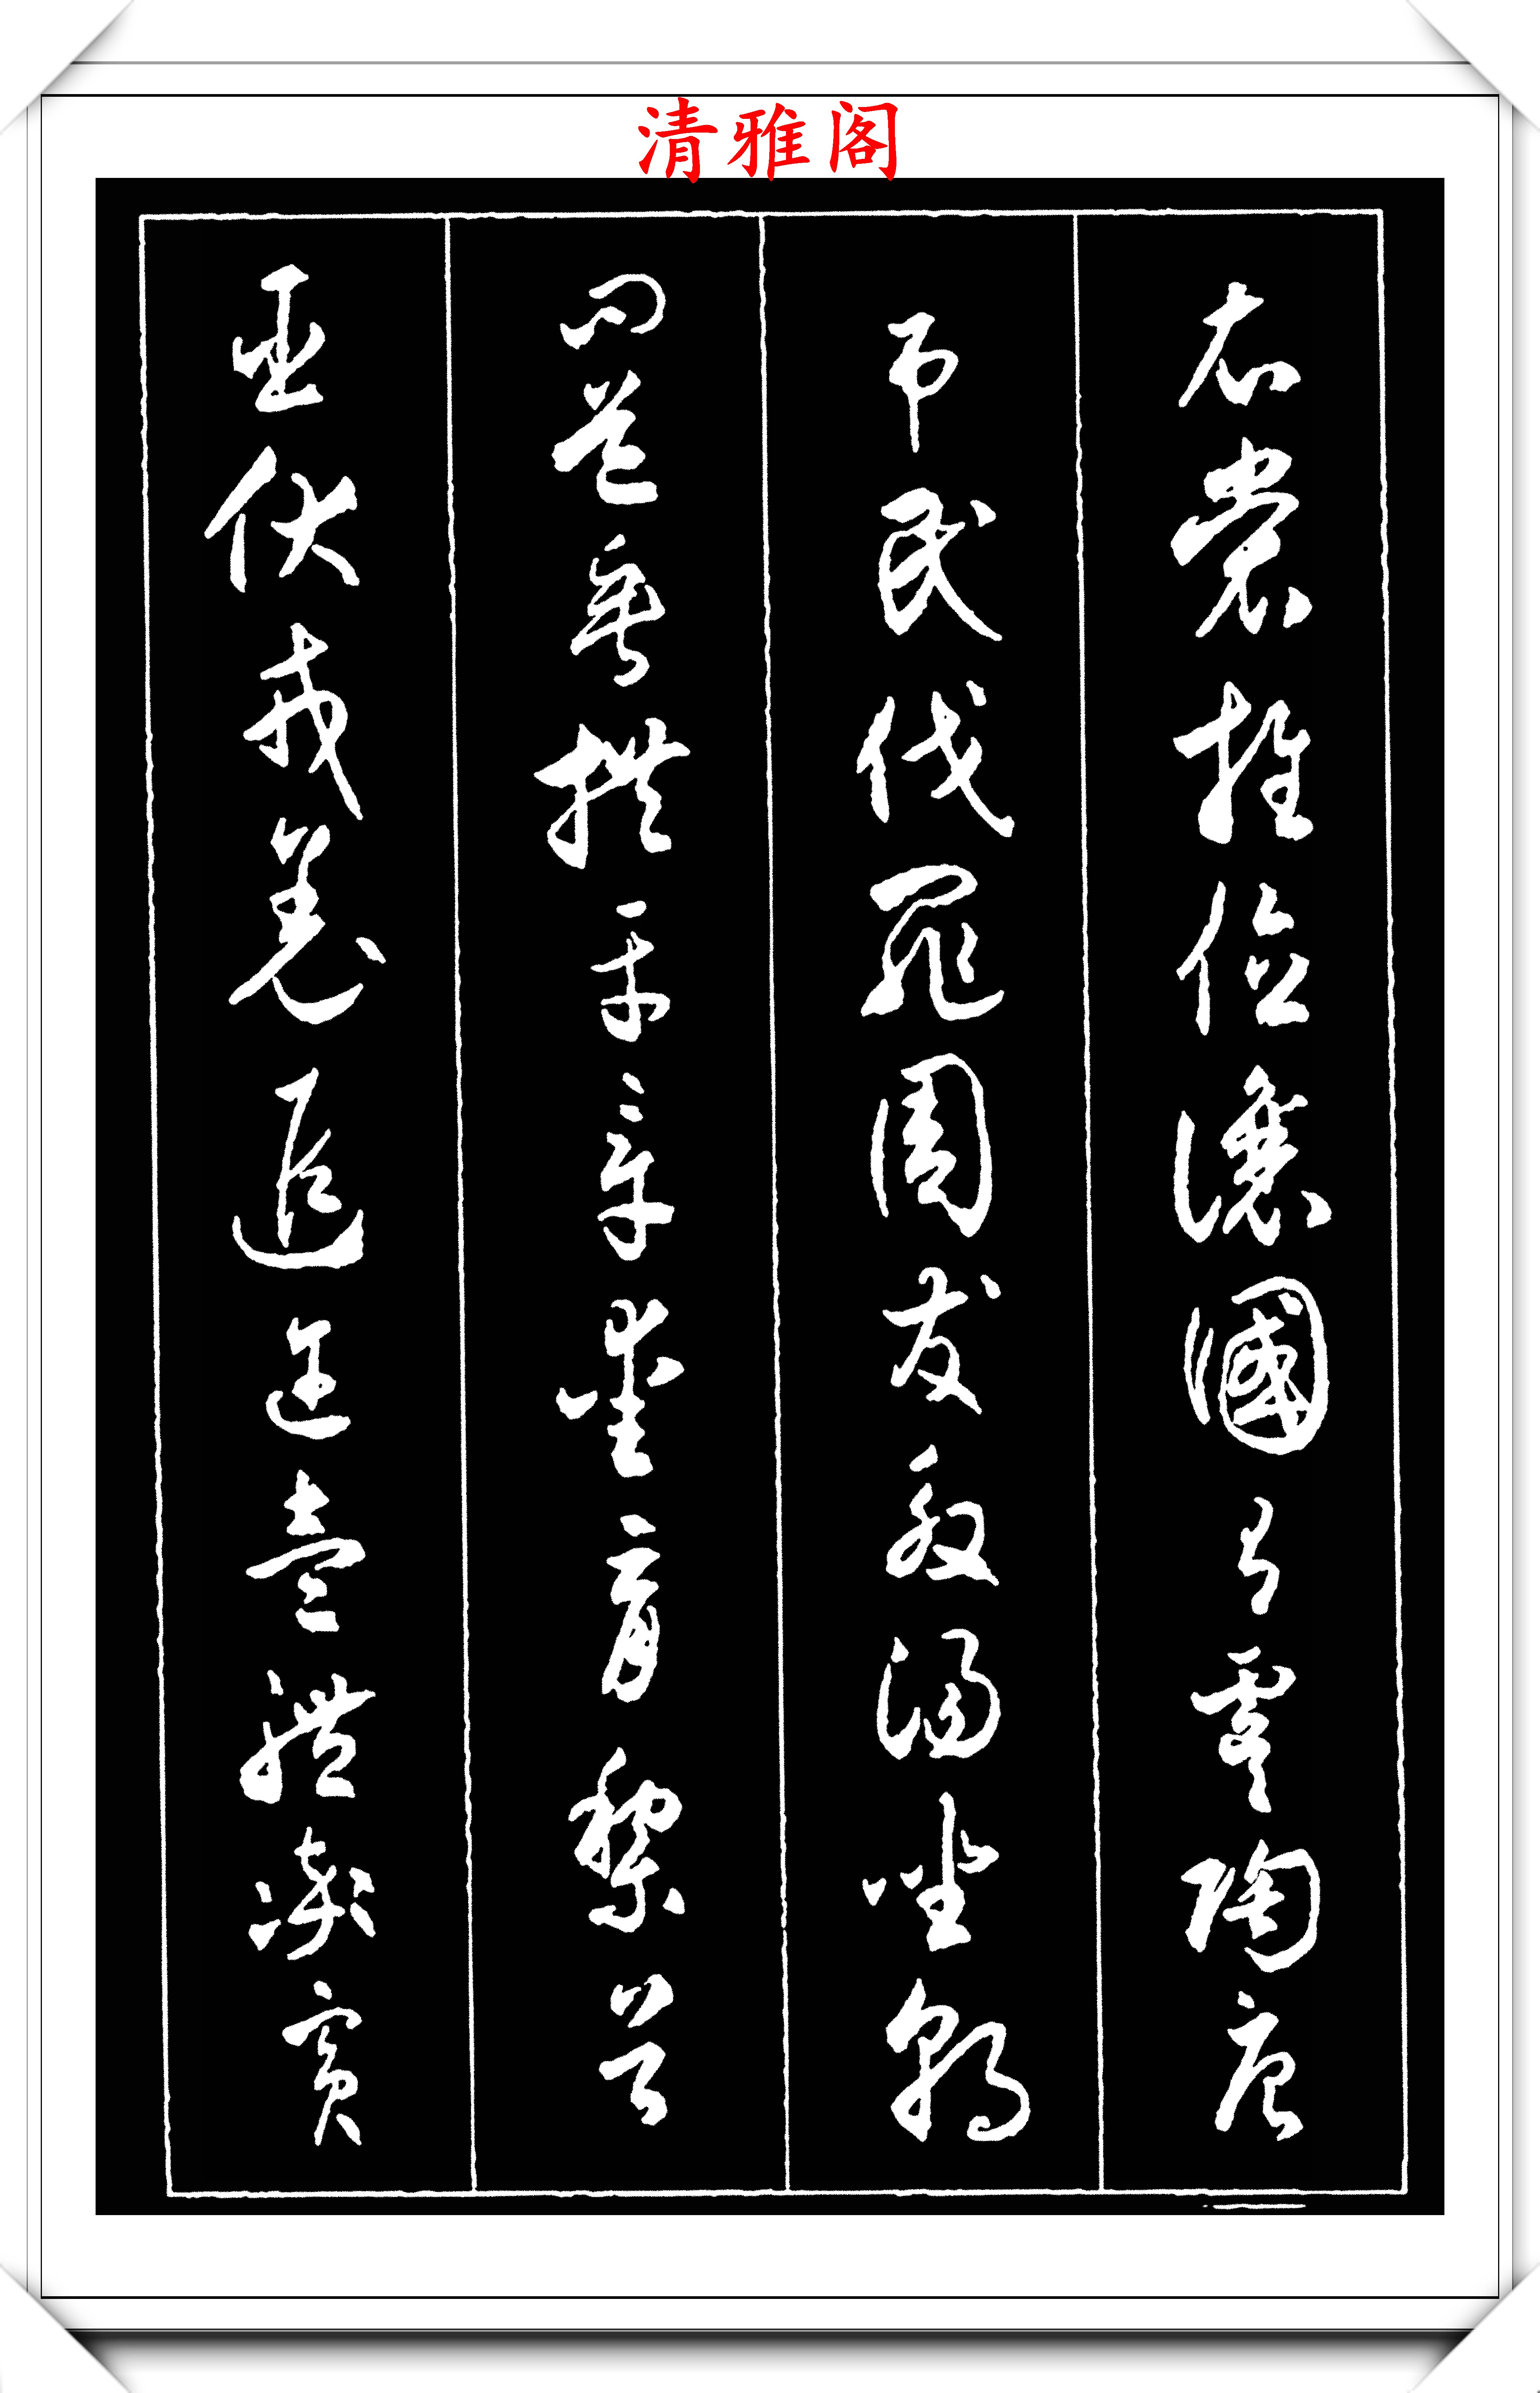 清雅阁
衣裳推位讓國有虞陶唐
吊民伐罪周發殷湯坐朝
問道垂拱平章愛育黎首
臣伏戎羌遐邇壹體率賓